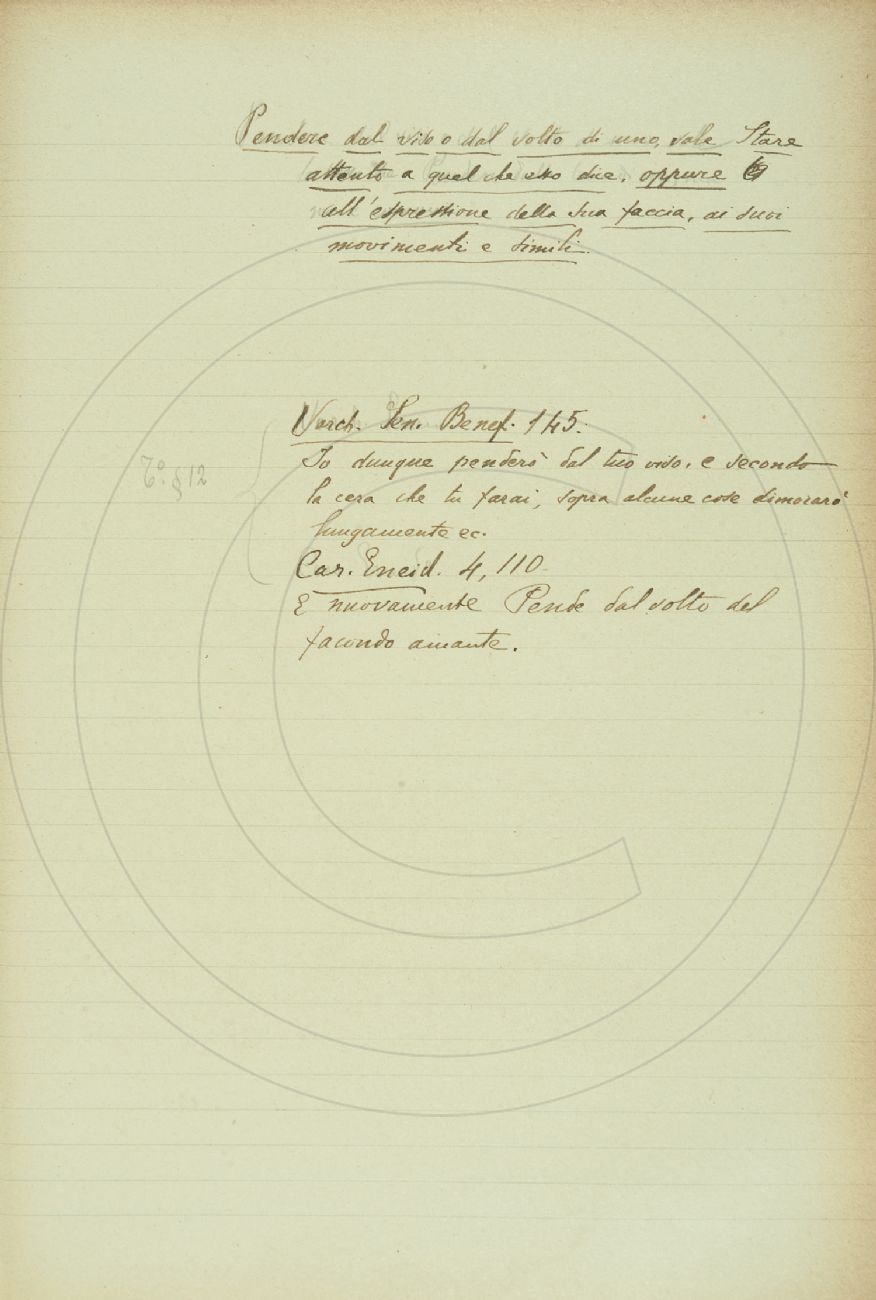 Pendere dal viso o dal volto di uno, vale Stare
attento a quel che esso dice, oppure
all'espressione della sua faccia, ai suoi
movimenti e simili.
Varch. Sen. Benef. 145.
Io dunque penderò dal tuo viso, e secondo
la cera che tu farai, sopra alcune cose dimorarò
lungamente ec.
§ 12
Car. Eneid. 4, 110
E nuovamente Pende dal volto del
facondo amante.